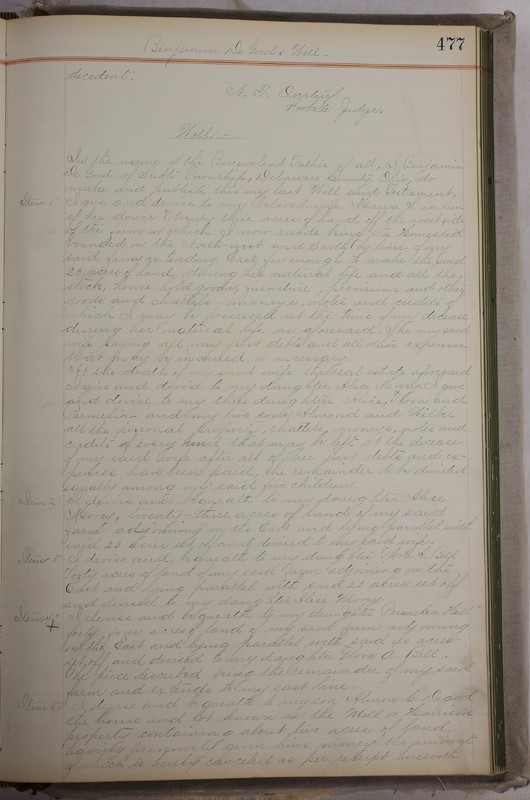 477
Benjamin De Good's Will.
decedent.
Probate Judge.
Wills
In the name of the Benevolent Father of all, I Benjamin
De Good of Township, Delaware County, Ohio, do
make and publish this my last Will and Testament,
Item 1 I give and devise to my beloved wife in lieu
of her dower Twenty three acres of land off the west side
of the farm on which I now reside being the Homestead
bounded on the North west and South by lines of my
said farm extending East far enough to make the said
23 acres of land, during her natural life and all the
stock, house hold goods, furniture, provisions and other
goods and chattels moneys, notes and credits of
which I may be possessed at the time of my decease
during her natural life as aforesaid. She my said
wife paying all my just debts and all other expenses
that may be incurred or necessary.
At the death of my said wife the real estate aforesaid
I give and devise to my daughter Alice I give
and devise to my three daughters Alice, Flora and
Permelia and my two sons and
all the personal property, chattels moneys, notes and
credits of every kind that may be left at the decease
of my said wife after all of her just debts and ex-
penses have been paid, the remainder to be divided
equally among my said five children.
Item 2 I devise and bequeath to my daughter Alice
twenty-three acres of land of my said
farm adjoining on the East and lying parallel with
said 23 acres set off and devised to my said wife.
Item I devise and bequeath to my daughter Flora A. Bell
Forty acres of land of my said farm adjoining on the
East and lying parallel with said 23 acres set off
and devised to my daughter Alice
Item 4 I devise and bequeath to my daughter Permelia
forty acres of land of my said farm adjoining
on the East and lying parallel with said 40 acres
set off and devised to my daughter Flora A. Bell.
The piece described being the remainder of my said
farm and extends to my east line.
Item 5 I devise and bequeath to my son
the house and lot known as the or Harrison
property containing about five acres of land
having previously given him money the amount
of which is hereby canceled as per receipt herewith